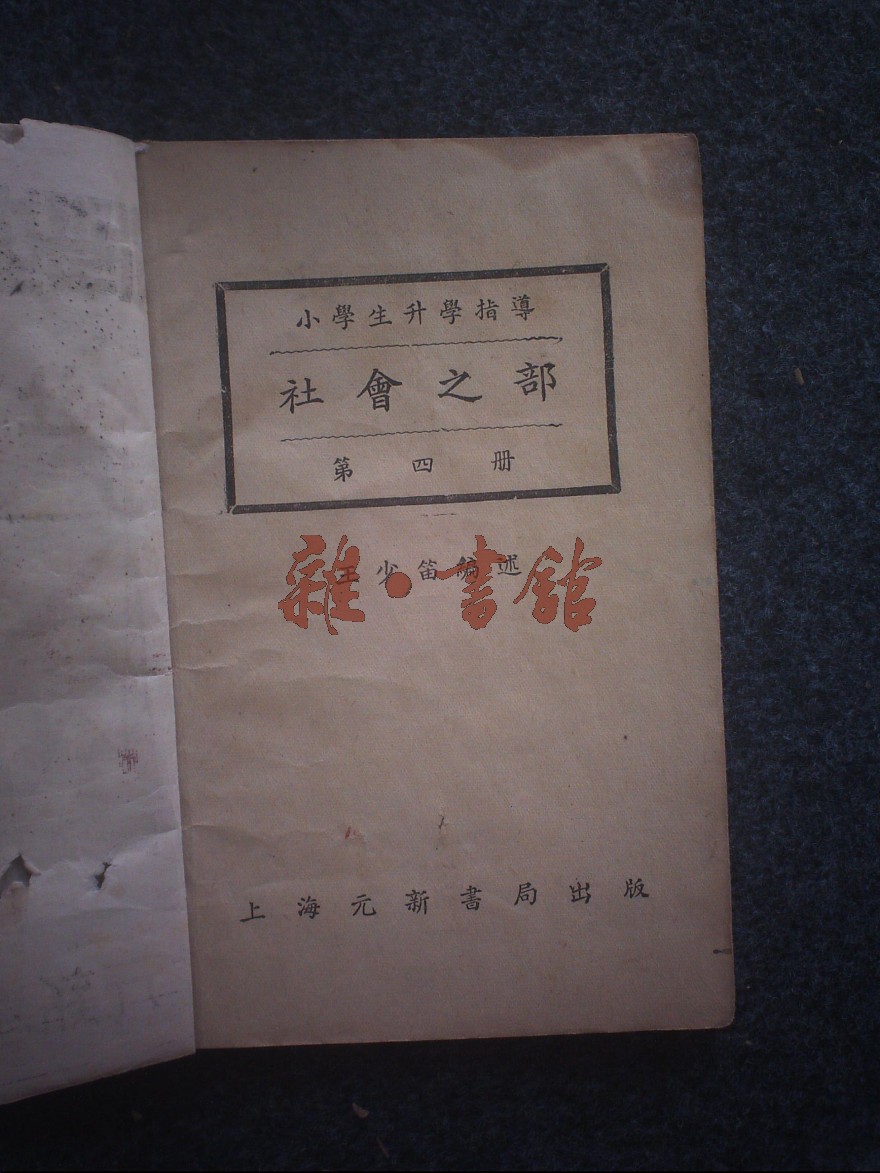 小學生升學指導
社會之部
第四册
王少笛編述
雜·書館
上海元新書局出版